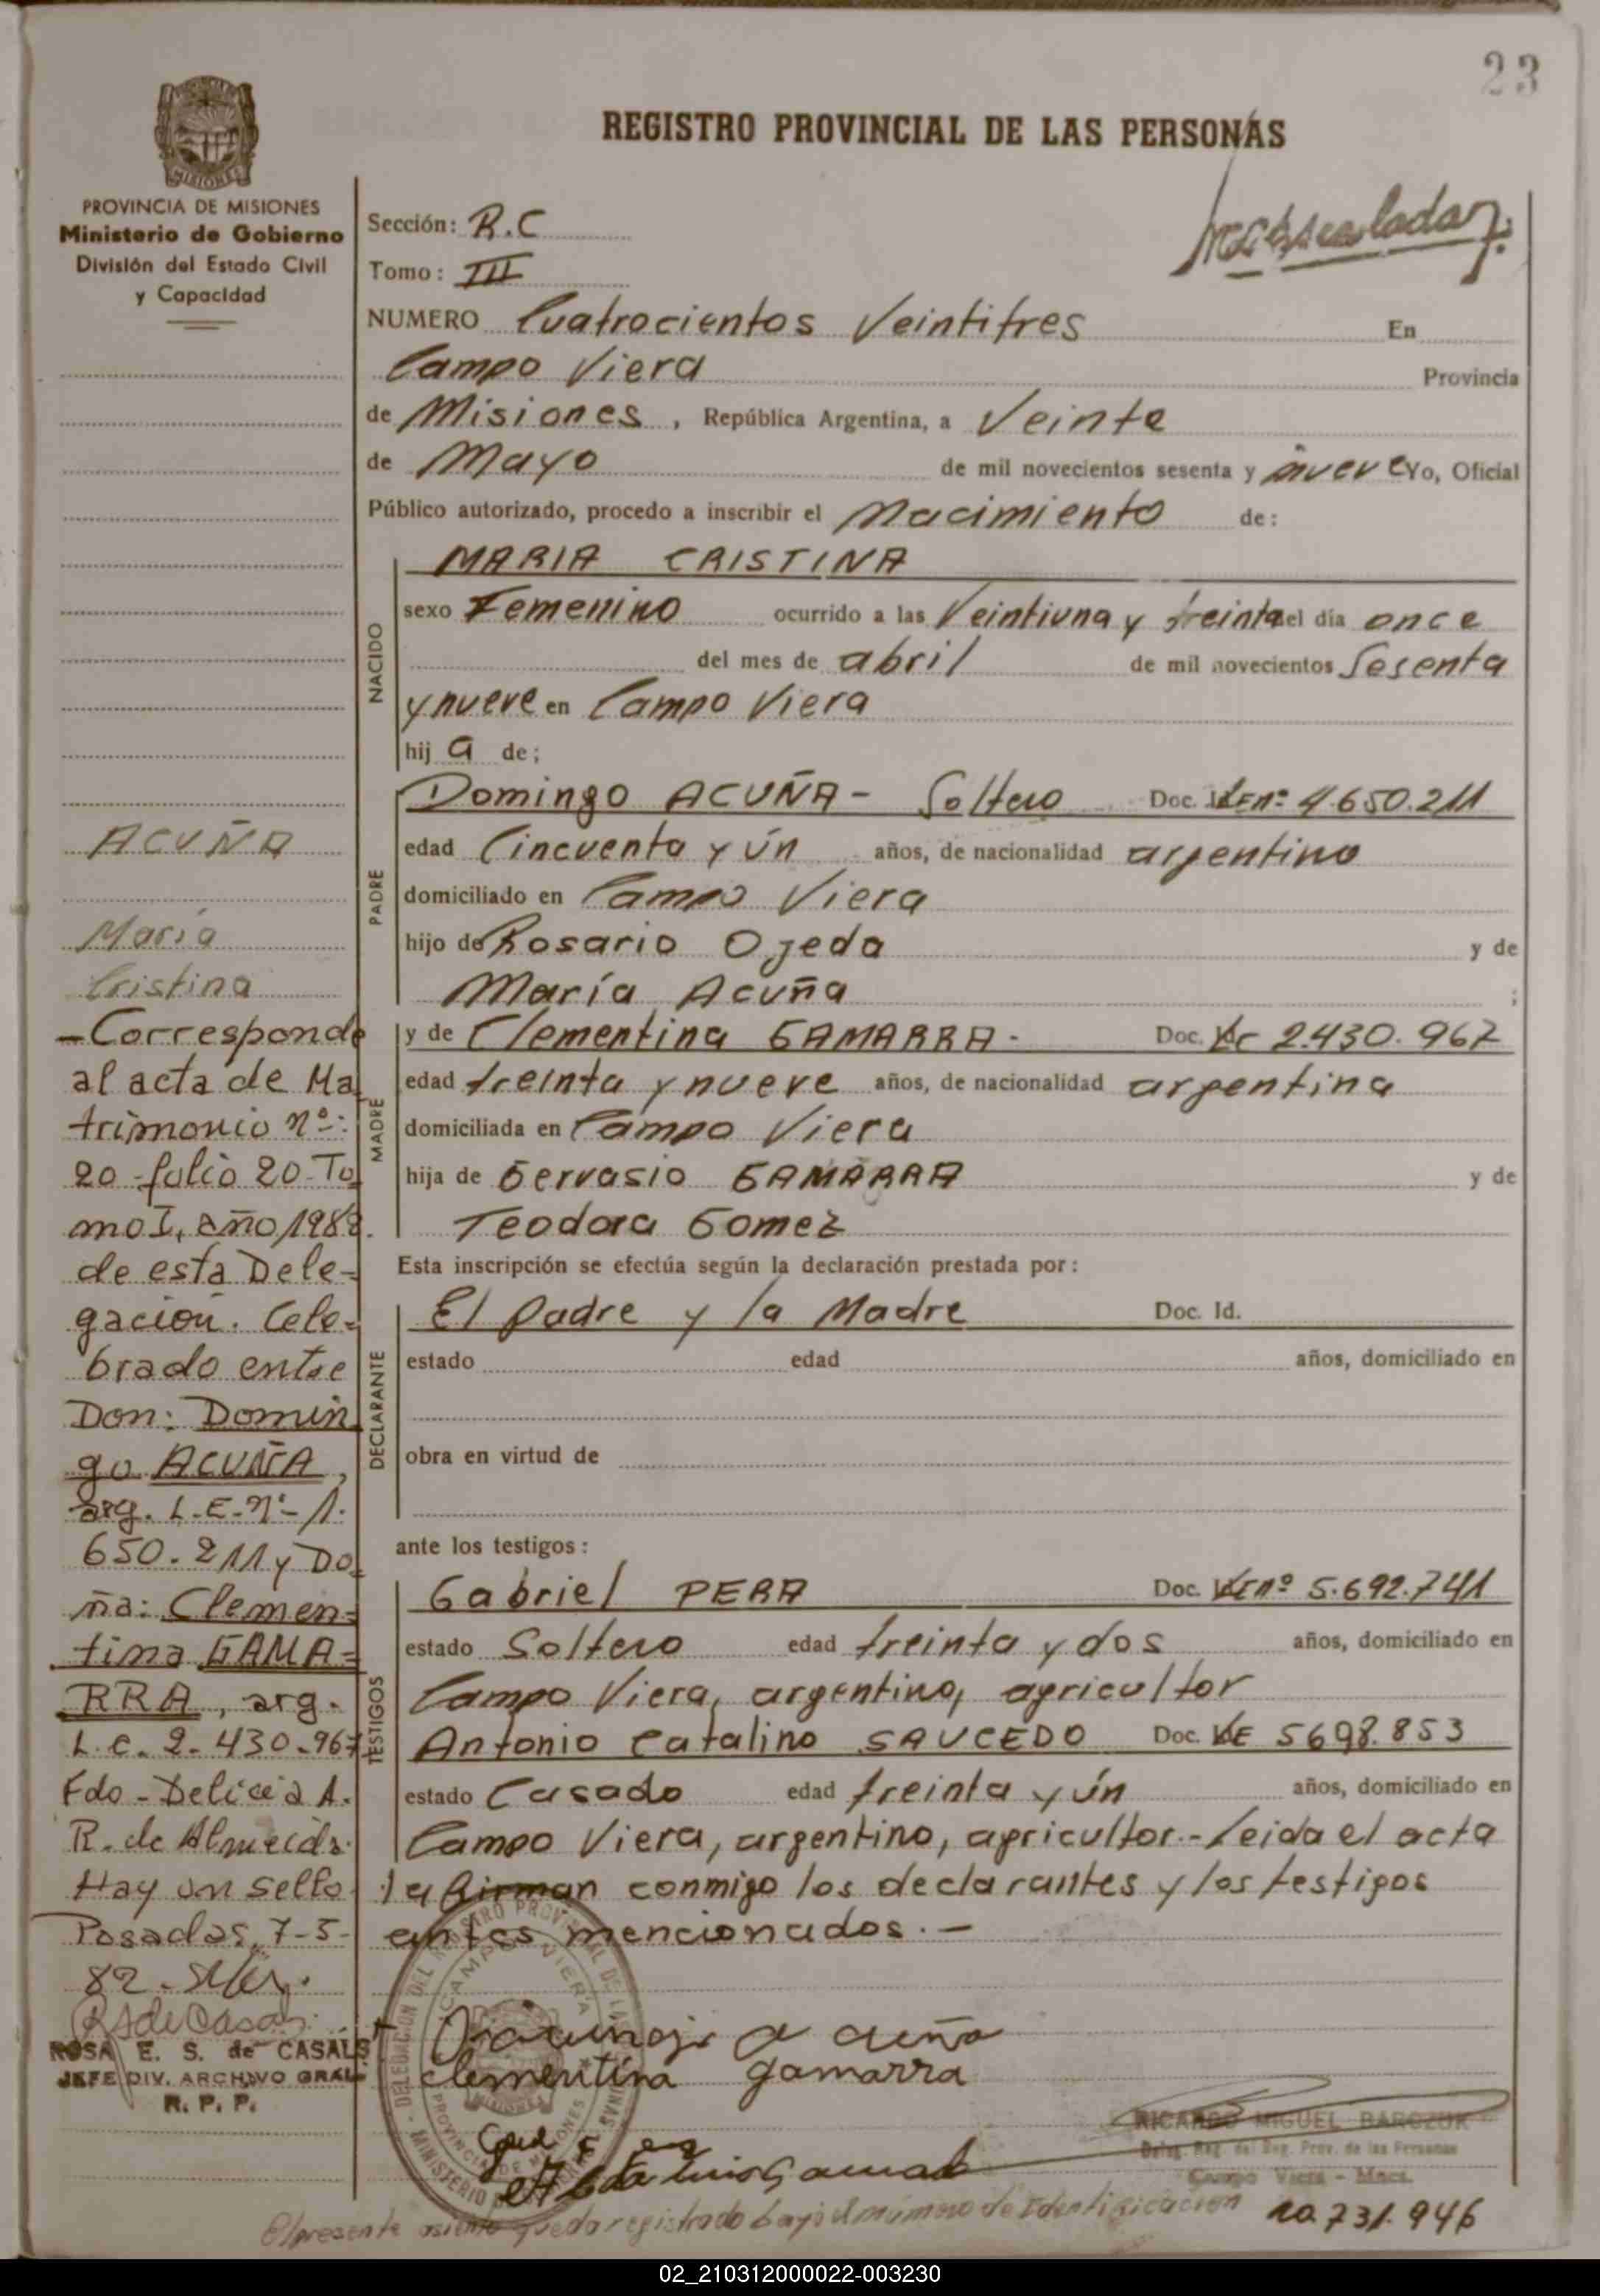 23
REGISTRO PROVINCIAL DE LAS PERSONAS
MISIONES
PROVINCIA DE MISIONES
Ministerio de Gobierno
División del Estado Civil
y Capacidad
Sección: R.C
Tomo: III
NUMERO Cuatrocientos Veintitres En
Campo Viera Provincia
de Misiones, República Argentina, a Veinte
de Mayo de mil novecientos sesenta y nueve Yo, Oficial
Público autorizado, procedo a inscribir el Nacimiento de:
NACIDO
MARIA CRISTINA
sexo Femenino ocurrido a las Veintiuna y treinta del día once
del mes de abril de mil novecientos Sesenta
y nueve en Campo Viera
hij a de;
PADRE
Domingo ACUÑA - Soltero Doc. LE nº 4.650.211
edad Cincuenta y ún años, de nacionalidad argentino
domiciliado en Campo Viera
hijo de Rosario Ojeda y de
María Acuña ;
MADRE
y de Clementina GAMARRA - Doc. LC 2.430.967
edad treinta y nueve años, de nacionalidad argentina
domiciliada en Campo Viera
hija de Gervasio GAMARRA y de
Teodora Gomez
Esta inscripción se efectúa según la declaración prestada por:
DECLARANTE
El Padre y la Madre Doc. Id.
estado edad años, domiciliado en
obra en virtud de
ante los testigos:
TESTIGOS
Gabriel PERA Doc. LE nº 5.692.741
estado Soltero edad treinta y dos años, domiciliado en
Campo Viera, argentino, agricultor
Antonio Catalino SAUCEDO Doc. LE 5698.853
estado Casado edad treinta y ún años, domiciliado en
Campo Viera, argentino, agricultor.- Leida el acta
la firman conmigo los declarantes y los testigos
antes mencionados.-
ACUÑA
María
Cristina
- Corresponde
al acta de Ma
trimonio nº:
20 folio 20-To
mo I, año 1982.
de esta Dele-
gación. Cele-
brado entre
Don: Domin
go ACUÑA,
arg. L.E.Nº- 1.
650.211 y Do
ña: Clemen-
tina GAMA=
RRA, arg.
L.C. 2.430.967
Fdo - Delicia A.
R. de Almeida.
Hay un sello
Posadas, 7-5-
82.
RSdeCasals
ROSA E. S. de CASALS
JEFE DIV. ARCHIVO GRAL
R. P. P.
DELEGACION DEL REGISTRO PROVINCIAL DE LAS PERSONAS
CAMPO VIERA
PROVINCIA DE MISIONES
acuña
clementina gamarra
RICARDO MIGUEL BARCZUK
Deleg. Reg. del Reg. Prov. de las Personas
Campo Viera - Mnes.
El presente asiento queda registrado bajo el número de Identificación 20.731.946
02_210312000022-003230